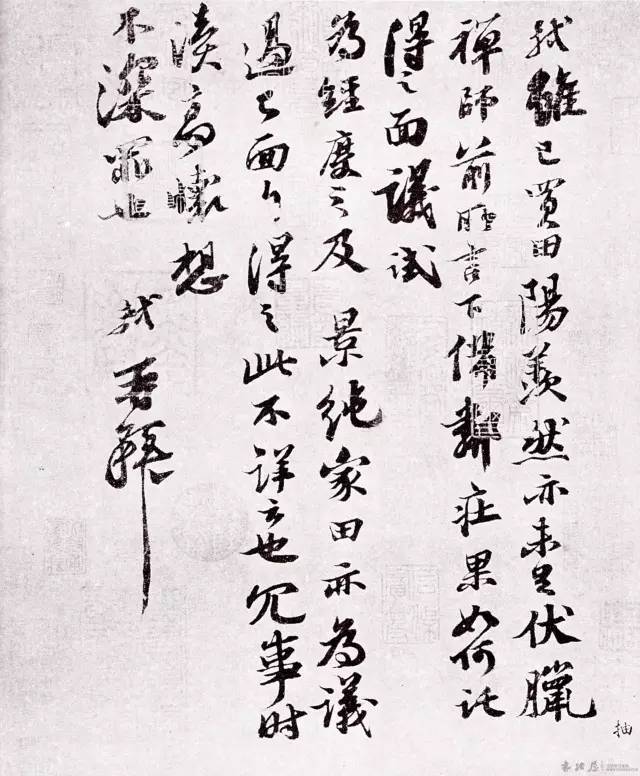 軾雖已買田陽羨然亦未足伏臘
禪師前所言下備鄰莊果如何託
得之面議試
為經度之及景純家田亦為議
過已面白得之此不詳云也冗事時
瀆高懷想
不深罪也 軾再拜
抽